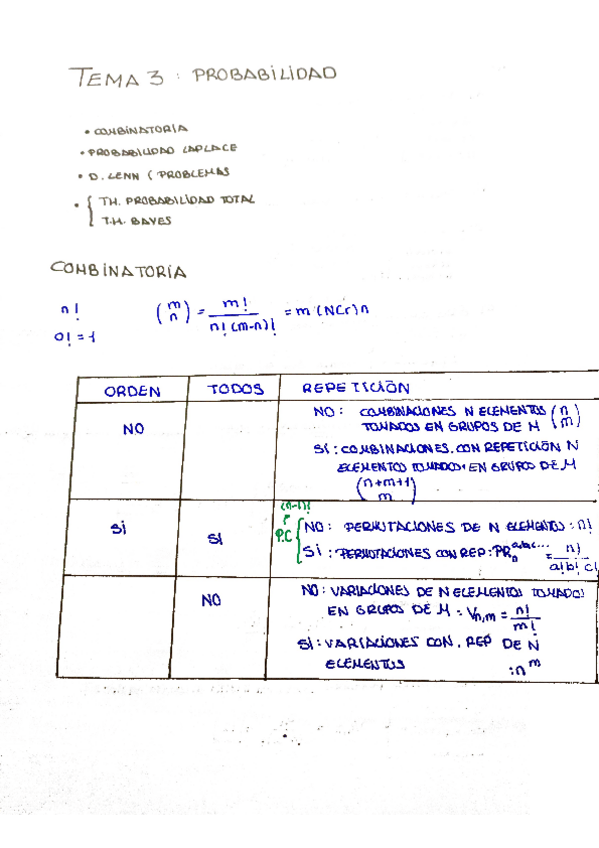 TEMA 3 : PROBABILIDAD
• COMBINATORIA
• PROBABILIDAD LAPLACE
• D. VENN ( PROBLEMAS
• { TH. PROBABILIDAD TOTAL
T.H. BAYES
COMBINATORIA
n!
0! = 1
(m n) = m! / n! (m-n)! = m (NCr) n
ORDEN TODOS REPETICIÓN
NO
NO : COMBINACIONES N ELEMENTOS (n m)
TOMADOS EN GRUPOS DE M
SÍ : COMBINACIONES CON REPETICIÓN N
ELEMENTOS TOMADOS EN GRUPO DE M
(n+m+1 m)
SÍ
SÍ
(n-1)!
P.C
NO : PERMUTACIONES DE N ELEMENTOS : n!
SÍ : PERMUTACIONES CON REP : PR n a,b,c... = n! / a! b! c!
NO
NO : VARIACIONES DE N ELEMENTOS TOMADOS
EN GRUPOS DE M : Vn,m = n! / m!
SÍ : VARIACIONES CON . REP DE N
ELEMENTOS : n^m